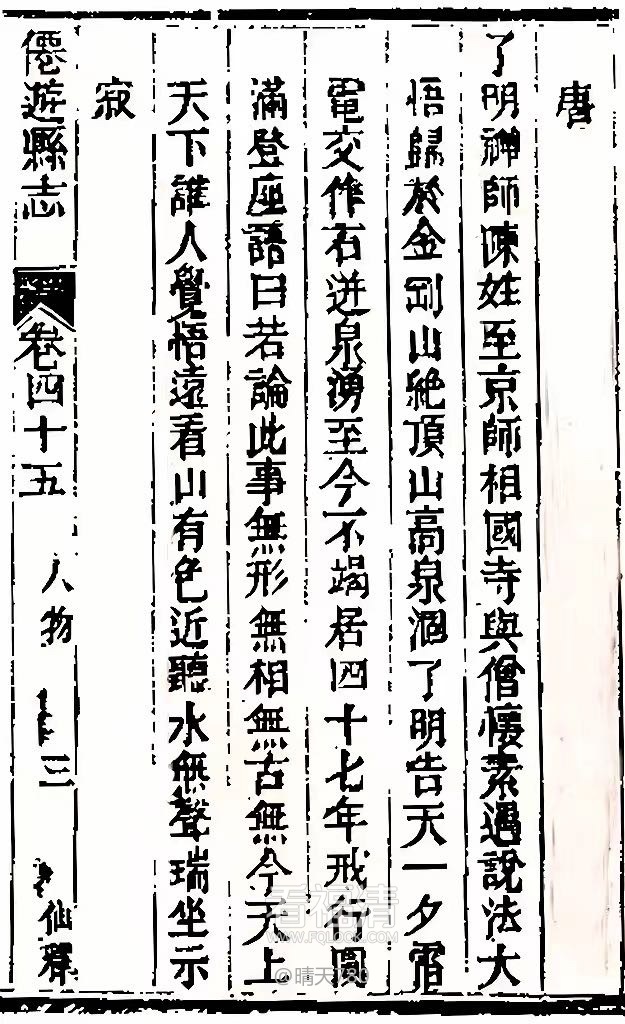 唐
了明禪師陳姓至京師相國寺與僧懷素遇說法大
悟歸於金剛山絶頂山高泉涸了明告天一夕雷
電交作石迸泉湧至今不竭居四十七年戒行圓
滿登座語曰若論此事無形無相無古無今天上
天下誰人覺悟遠看山有色近聽水無聲瑞坐示
寂
僊遊縣志 卷四十五 人物 三 仙釋
看視清
WWW.FQLOOK.COM
@晴天780